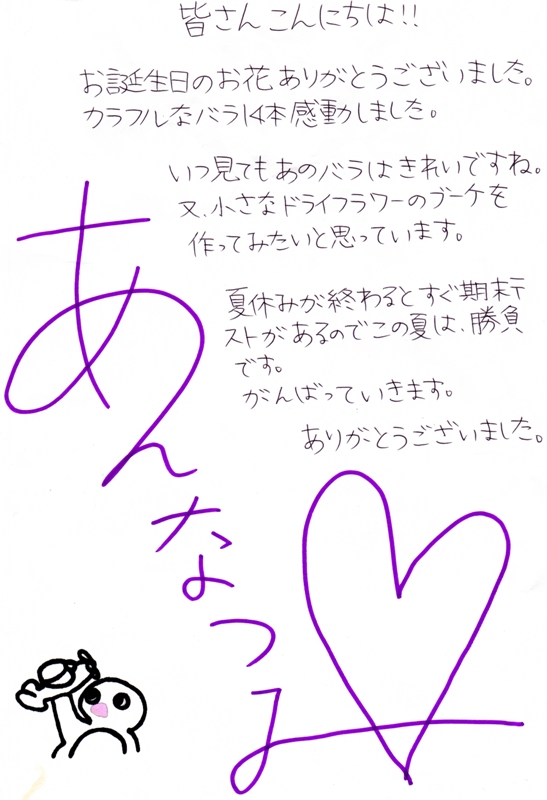 皆さんこんにちは!!
お誕生日のお花ありがとうございました。
カラフルなバラ14本感動しました。
いつ見てもあのバラはきれいですね。
又、小さなドライフラワーのブーケを
作ってみたいと思っています。
夏休みが終わるとすぐ期末テ
ストがあるのでこの夏は、勝負
です。
がんばっていきます。
ありがとうございました。
あんなつる